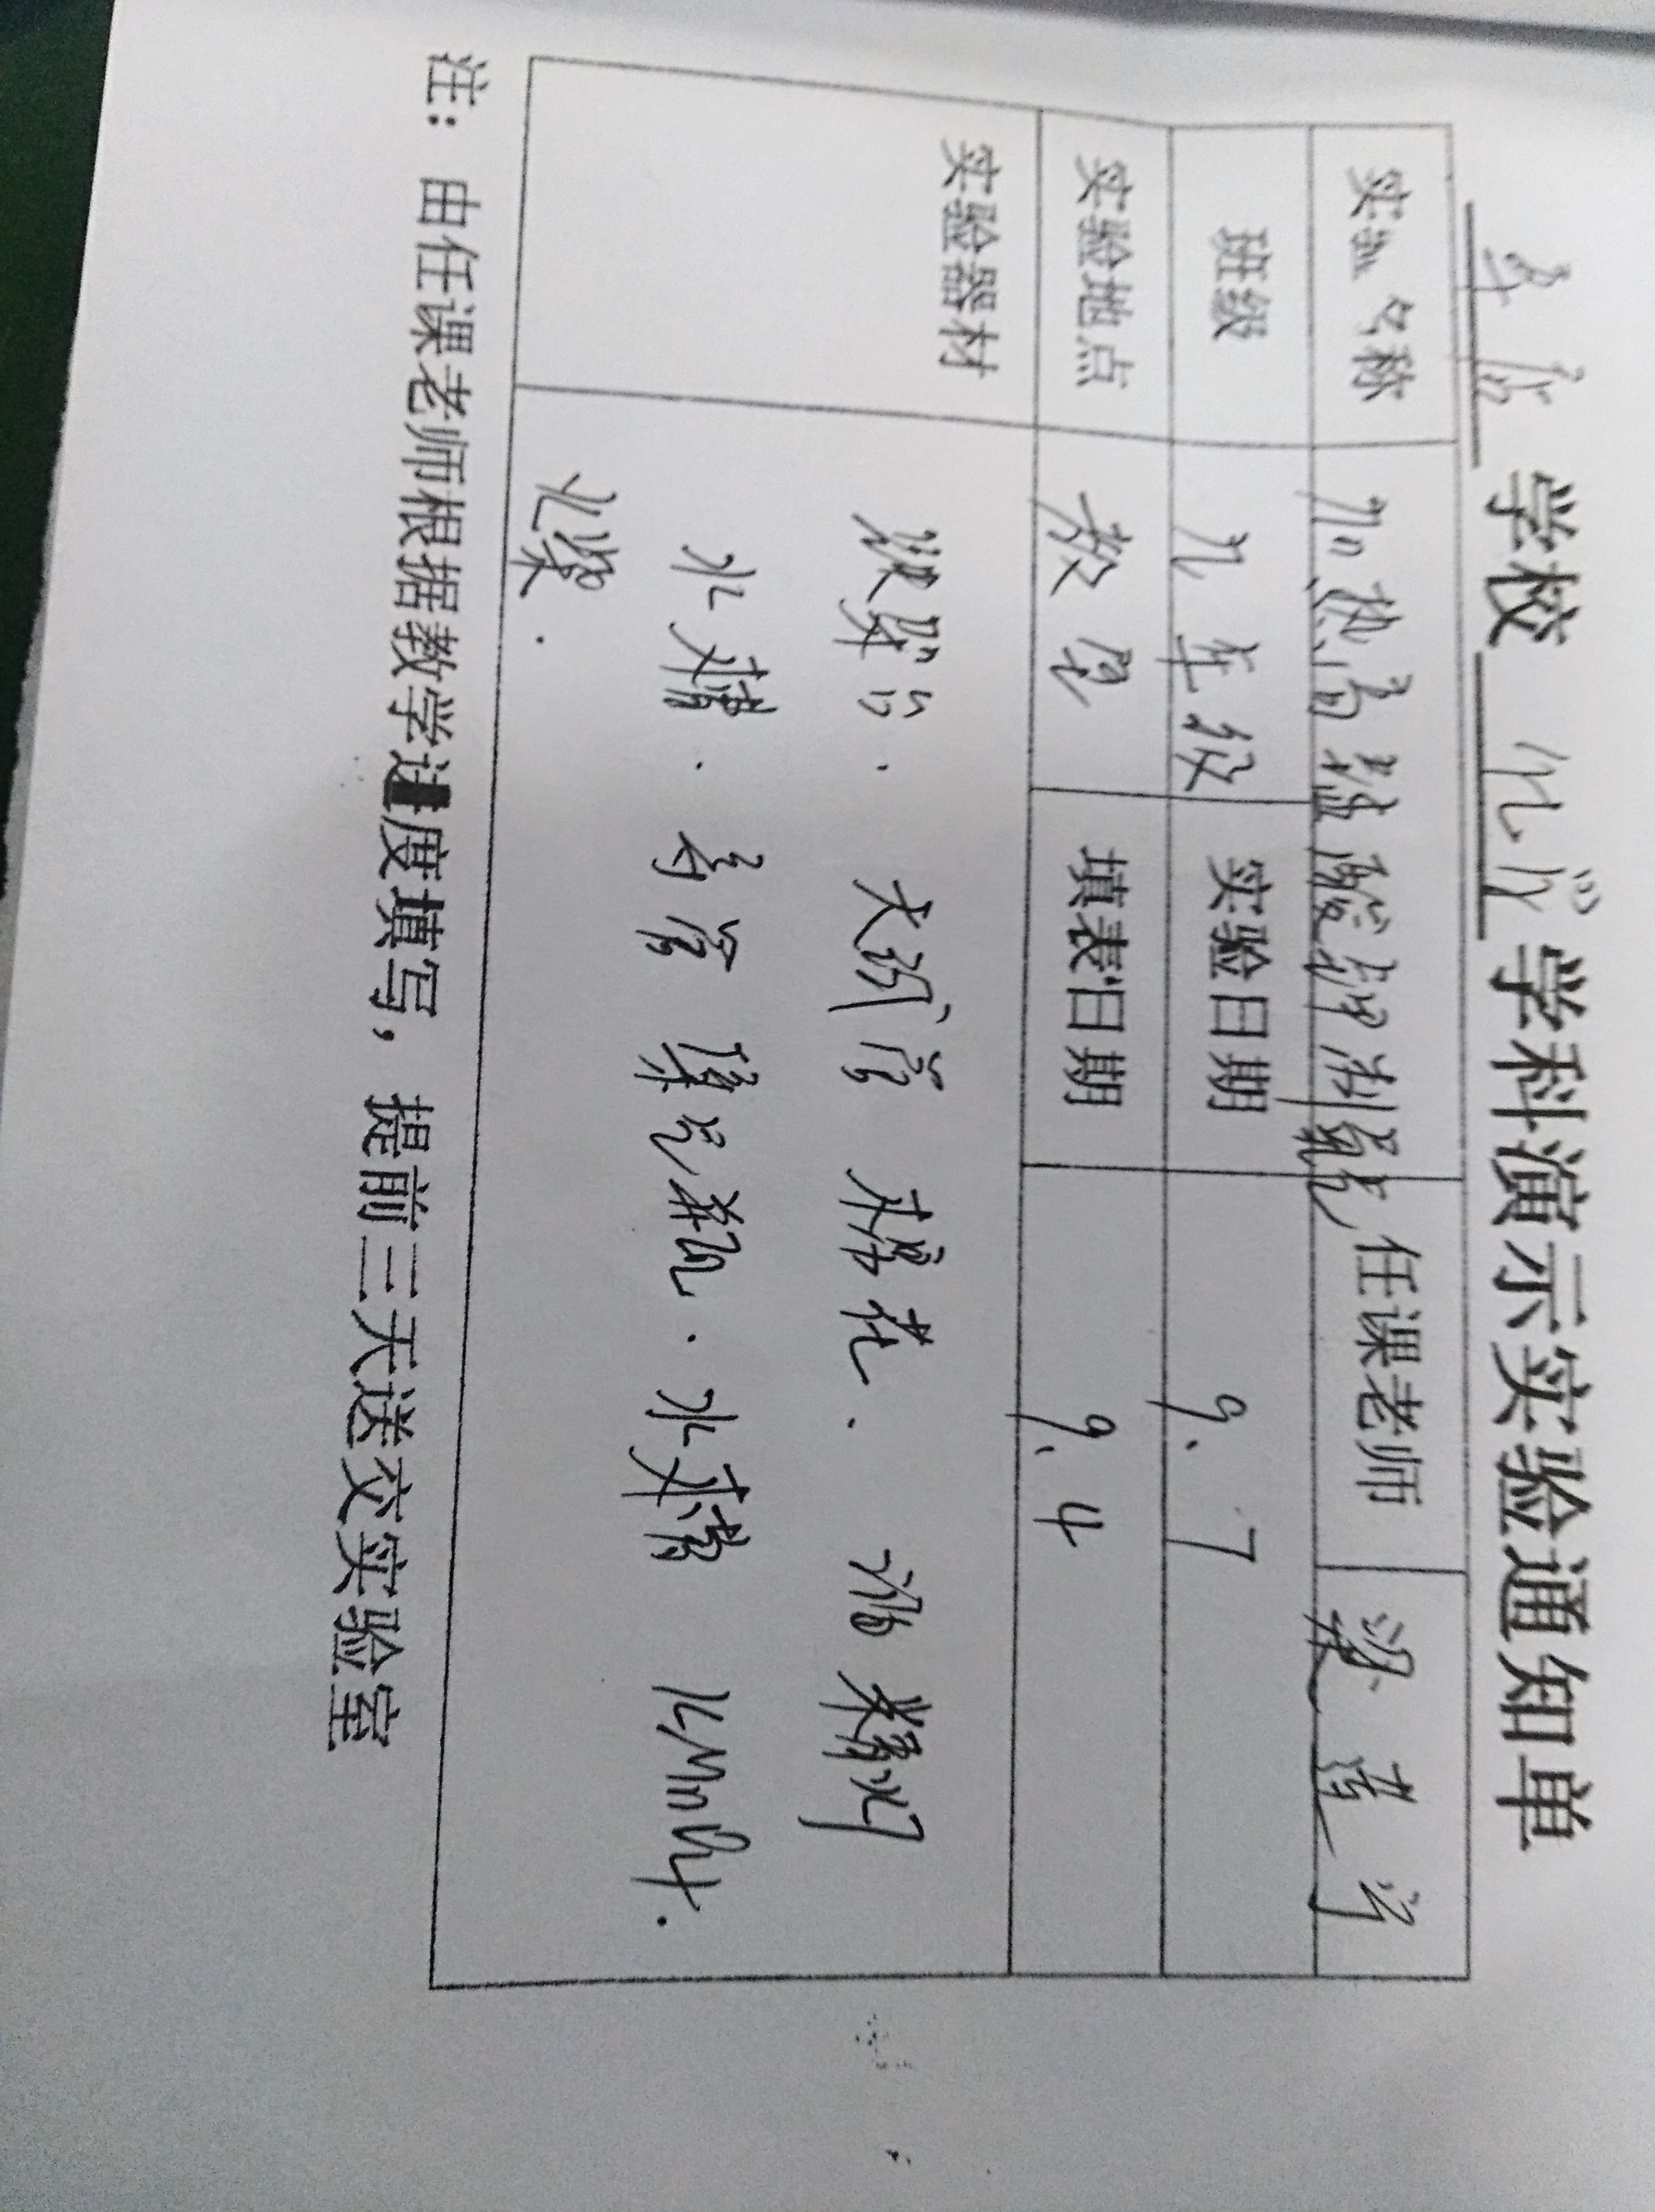 学校 化学 学科演示实验通知单
实验名称 加热高锰酸钾制氧气 任课老师
班级 九年级 实验日期 9.7
实验地点 教室 填表日期 9.4
实验器材 铁架台. 大试管 棉花. 酒精灯
水槽. 导管 集气瓶. 水槽 KMnO4.
火柴.
注：由任课老师根据教学进度填写，提前三天送交实验室